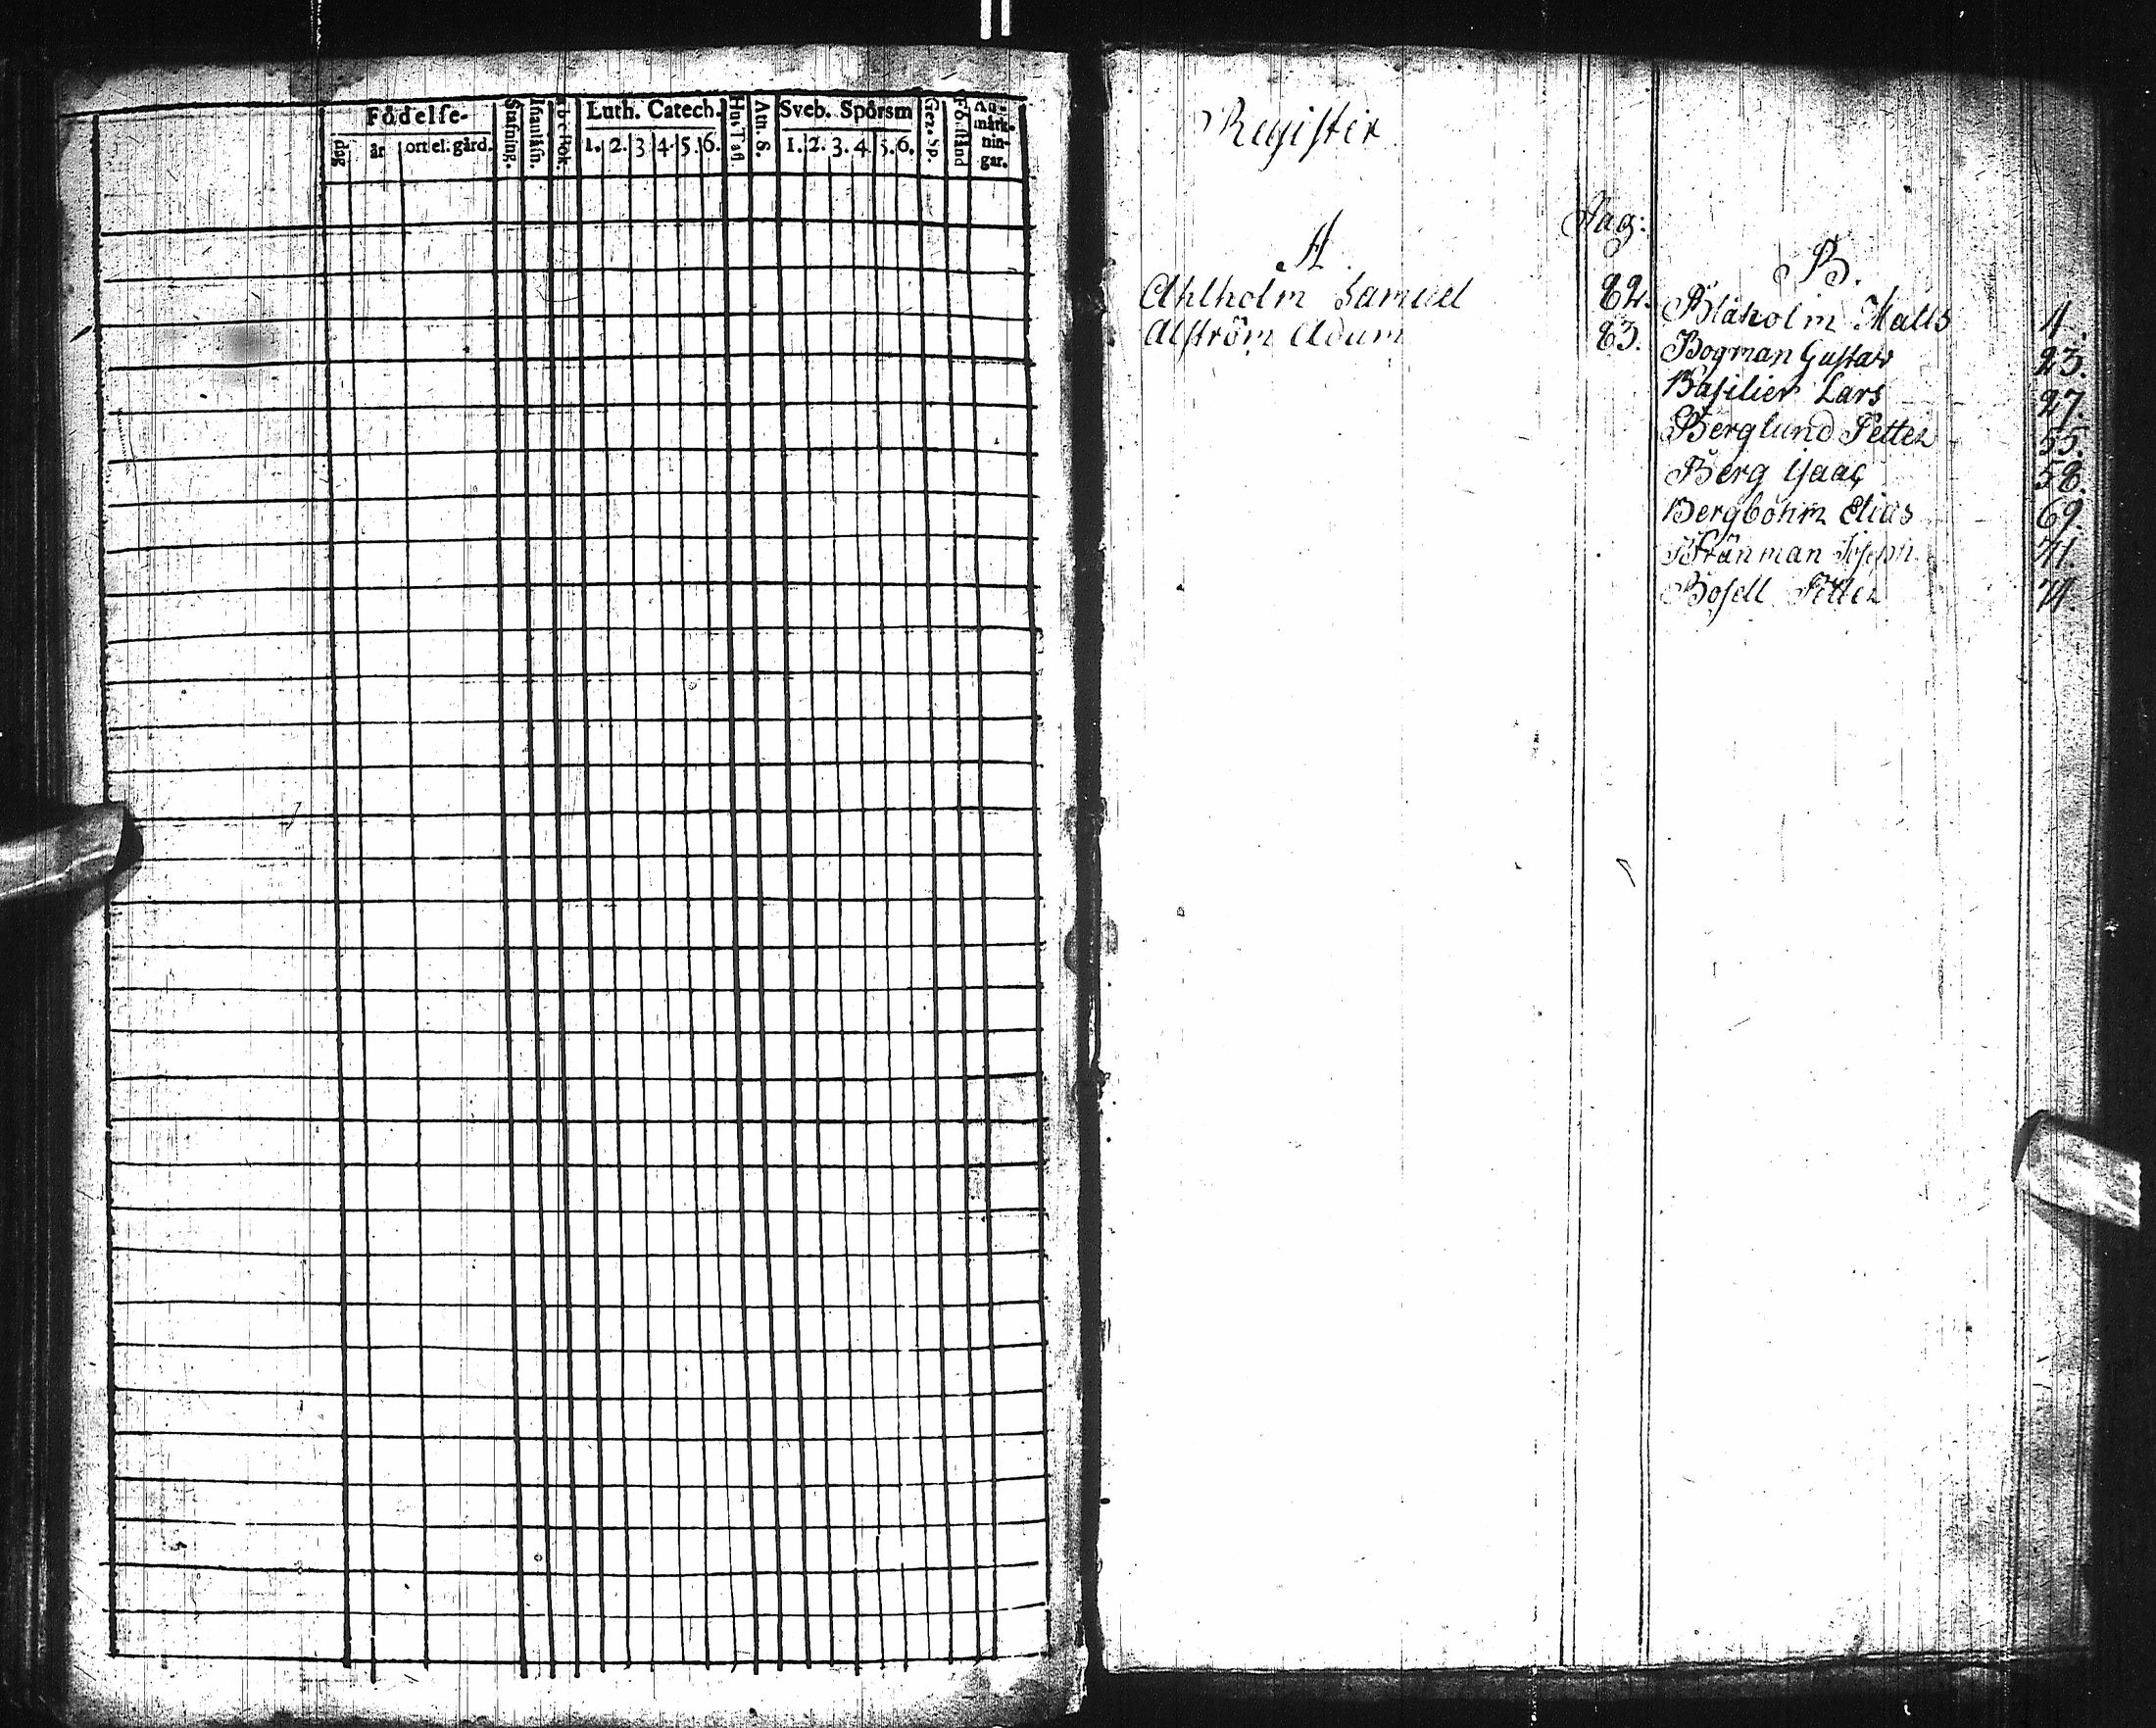 Födelse-
dag
år
ort el. gård.
Stafning.
Innanläsn.
Abc bok.
Luth. Catech.
1. 2. 3 4. 5. 6.
Hus Tafl.
Ath. S.
Sveb. Spörsm
1. 2. 3. 4. 5. 6.
Gez. Sp.
Förstånd
An-
märk-
nin-
gar.
Register
Pag:
A
Ahlholm Samuel 82.
Alström Adam 83.
B.
Blåholm Matts 1.
Bogman Gustav 23.
Basilier Lars 27.
Berglund Petter 55.
Berg Isaac 58.
Bergbohm Elias 69.
Bränman Joseph 71.
Bosell Petter 71.